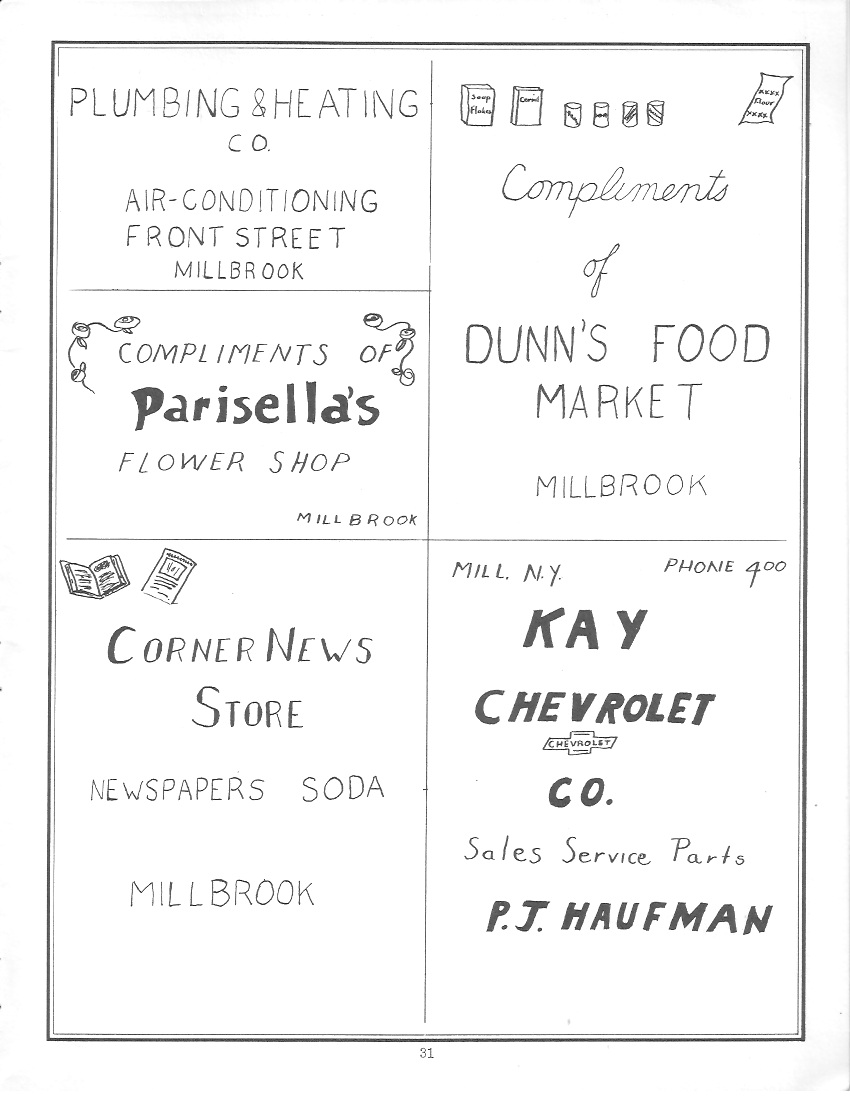 PLUMBING & HEATING
CO.
AIR-CONDITIONING
FRONT STREET
MILLBROOK
COMPLIMENTS OF
Parisella's
FLOWER SHOP
MILLBROOK
CORNER NEWS
STORE
NEWSPAPERS SODA
MILLBROOK
Soap
Flakes
Cereal
xxxx
Flour
xxxx
Compliments
of
DUNN'S FOOD
MARKET
MILLBROOK
MILL. N.Y. PHONE 400
KAY
CHEVROLET
CHEVROLET
CO.
Sales Service Parts
P.J. HAUFMAN
31